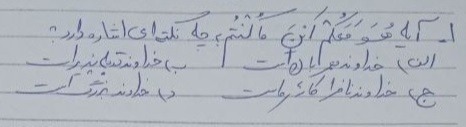 ۱ـ آیه هُوَ مَعَکُم أَینَ مَا کُنتُم، به چه نکته‌ای اشاره دارد؟
الف) خداوند مهربان است ب) خداوند پذیر است
ج) خداوند ناظر کارهاست د) خداوند بزرگ است